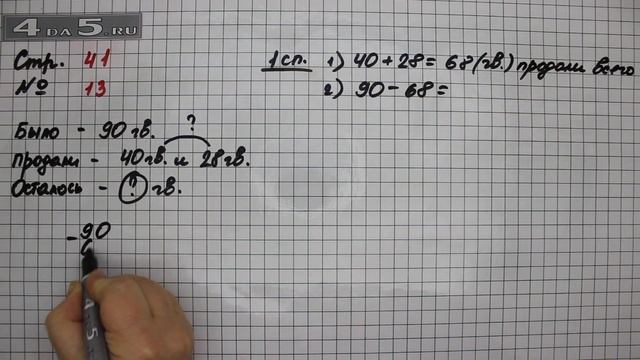 4DA5.RU
Стр. 41
№ 13
1 сп. 1) 40 + 28 = 68 (гв.) продали всего
2) 90 - 68 =
Было - 90 гв.
?
Продали - 40 гв. и 28 гв.
Осталось - ? гв.
- 90
4 5